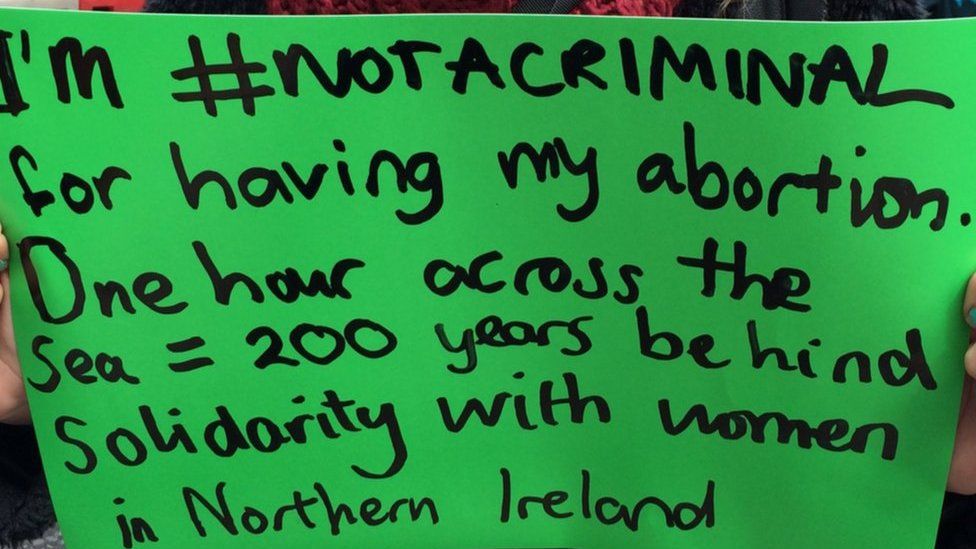 I'm #NOTACRIMINAL
for having my abortion.
One hour across the
sea = 200 years behind
Solidarity with women
in Northern Ireland